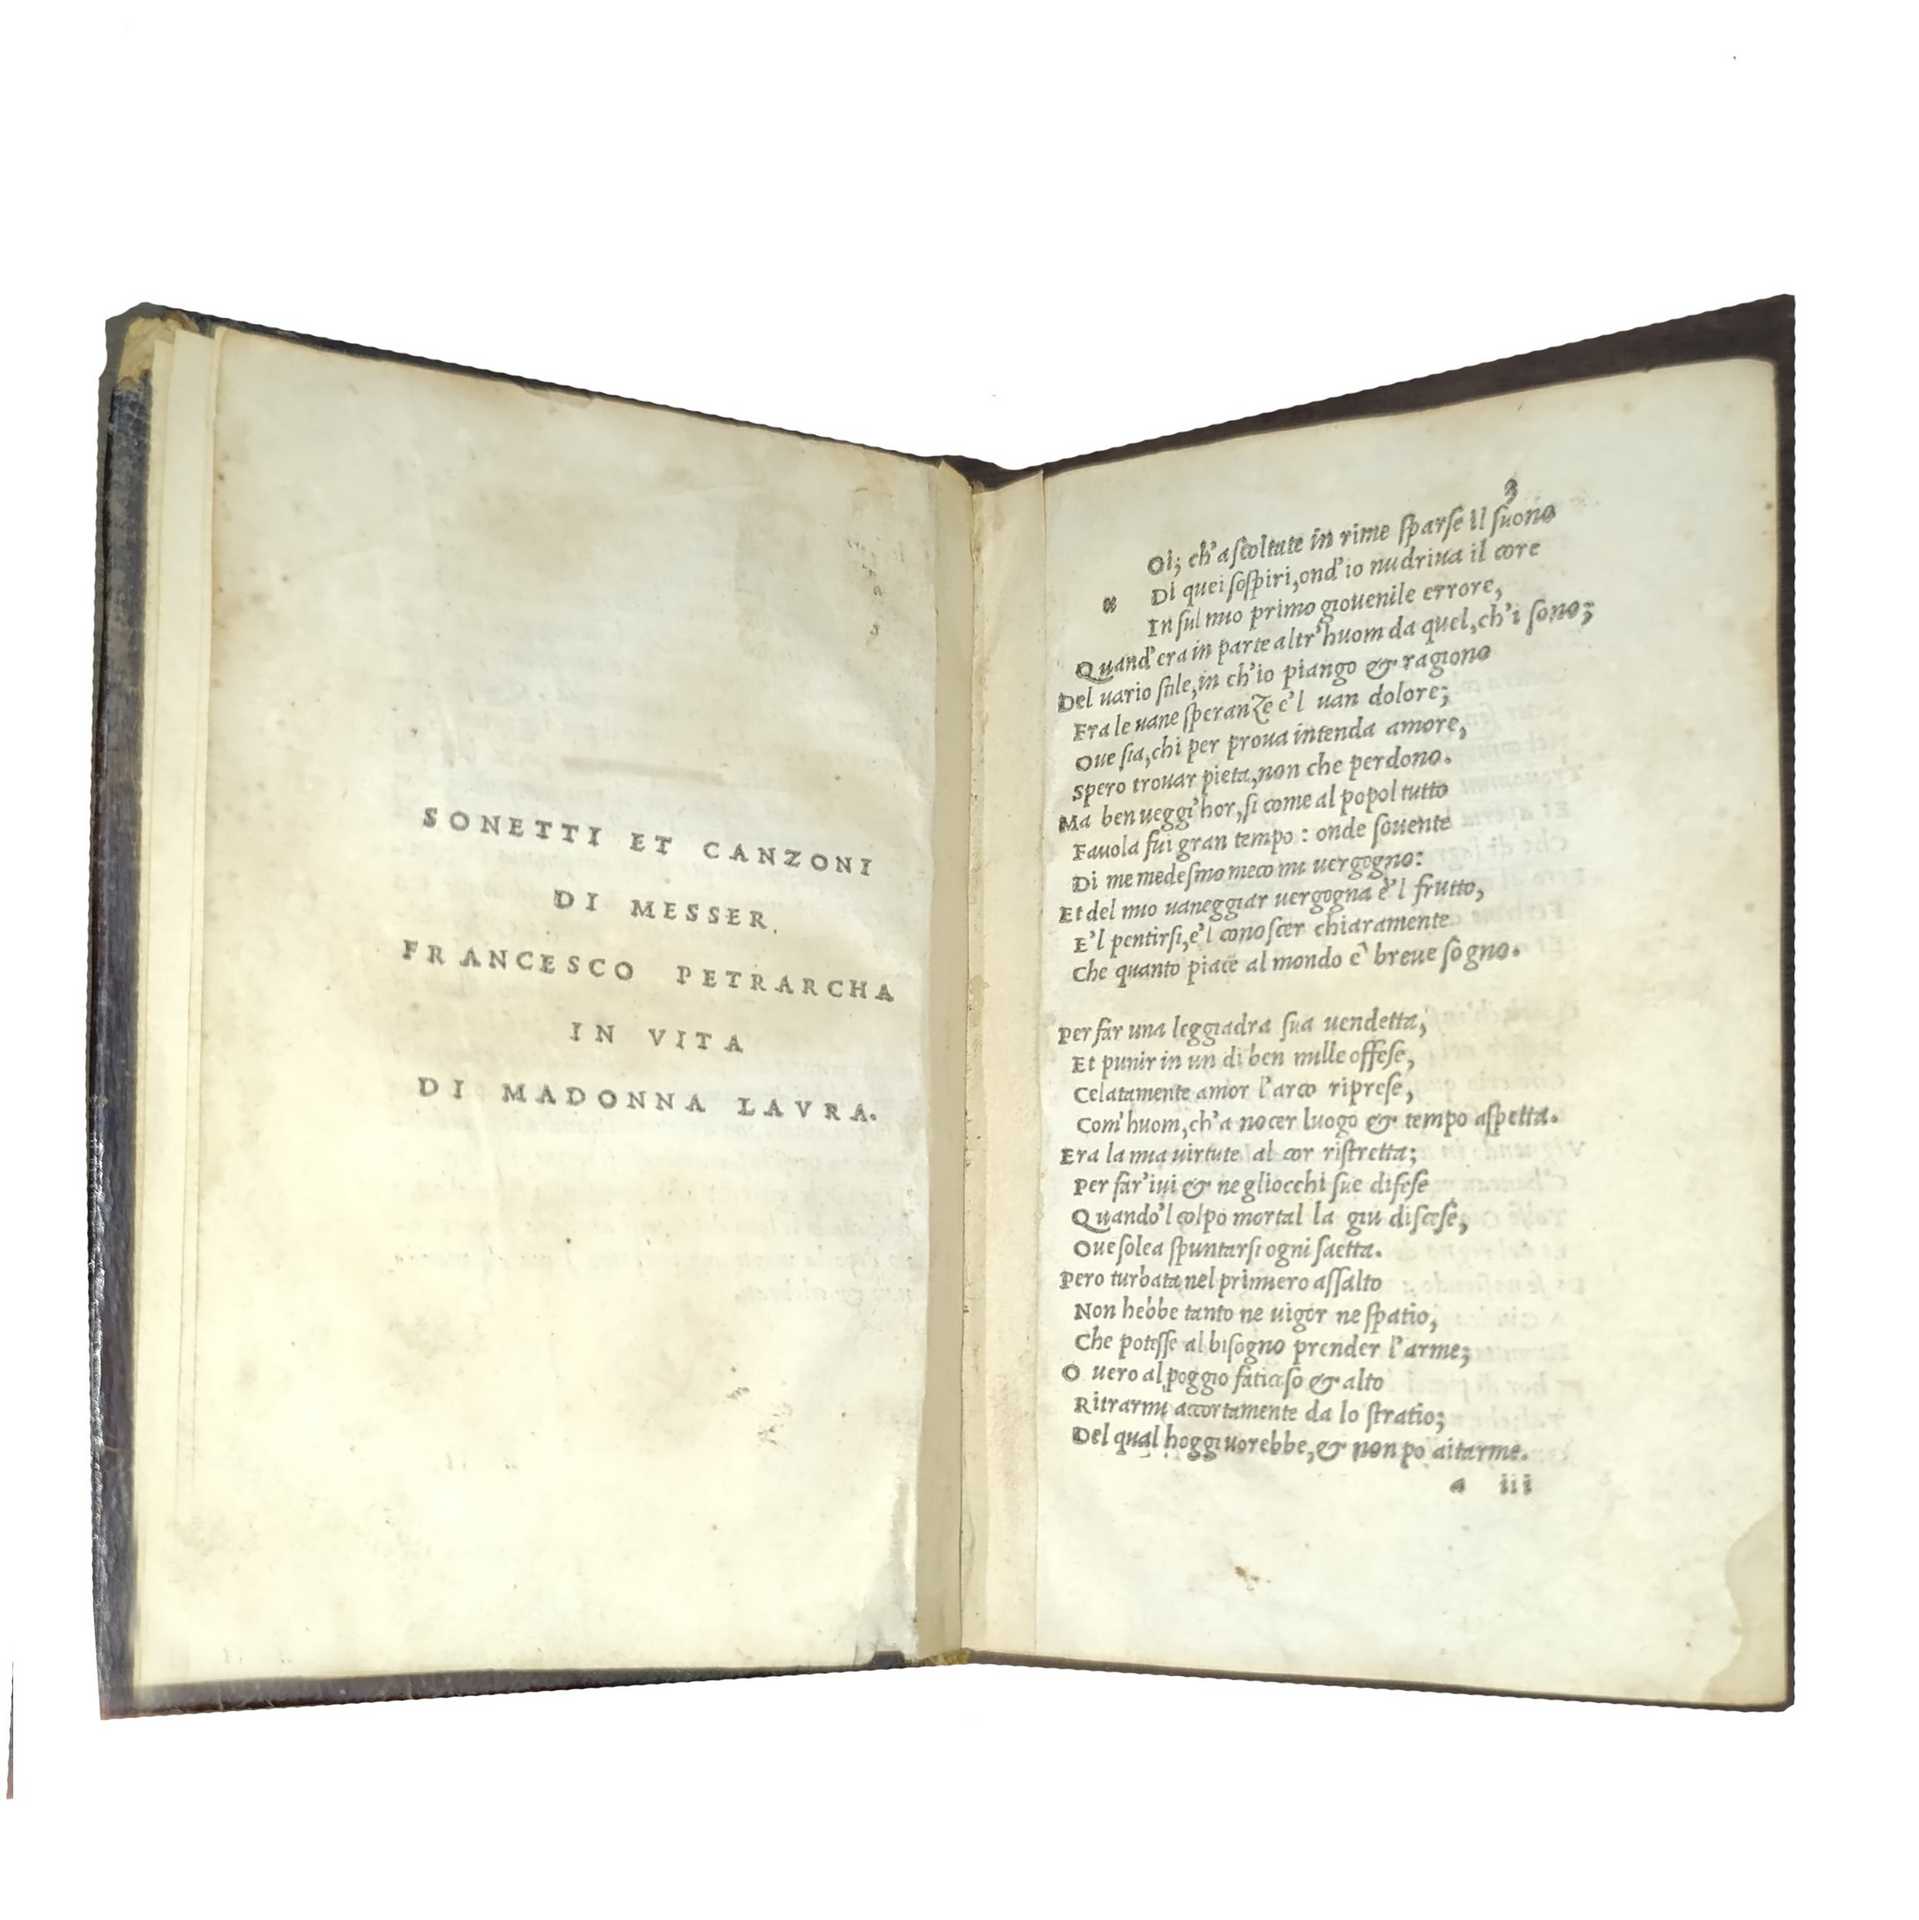 SONETTI ET CANZONI
DI MESSER
FRANCESCO PETRARCHA
IN VITA
DI MADONNA LAVRA.
3
OI; ch'ascoltate in rime sparse il suono
DI quei sospiri, ond'io nudriua il core
IN sul mio primo giouenile errore,
Quand'era in parte altr'huom da quel, ch'i sono;
Del uario stile, in ch'io piango & ragiono
Fra le uane speranze e'l uan dolore;
Oue sia, chi per proua intenda amore,
Spero trouar pieta, non che perdono.
Ma ben ueggi'hor, si come al popol tutto
Fauola fui gran tempo: onde souente
Di me medesmo meco mi uergogno:
Et del mio uaneggiar uergogna è'l frutto,
E'l pentirsi, e'l conoscer chiaramente
Che quanto piace al mondo è breue sogno.
Per far una leggiadra sua uendetta,
Et punir in un di ben mille offese,
Celatamente amor l'arco riprese,
Com'huom, ch'a nocer luogo & tempo aspetta.
Era la mia uirtute al cor ristretta;
Per far'iui & ne gliocchi sue difese
Quando'l colpo mortal la giu discese,
Oue solea spuntarsi ogni saetta.
Pero turbata nel primiero assalto
Non hebbe tanto ne uigor ne spatio,
Che potesse al bisogno prender l'arme;
O uero al poggio faticoso & alto
Ritrarmi accortamente da lo stratio;
Del qual hoggi uorebbe, & non po aitarme.
a iii